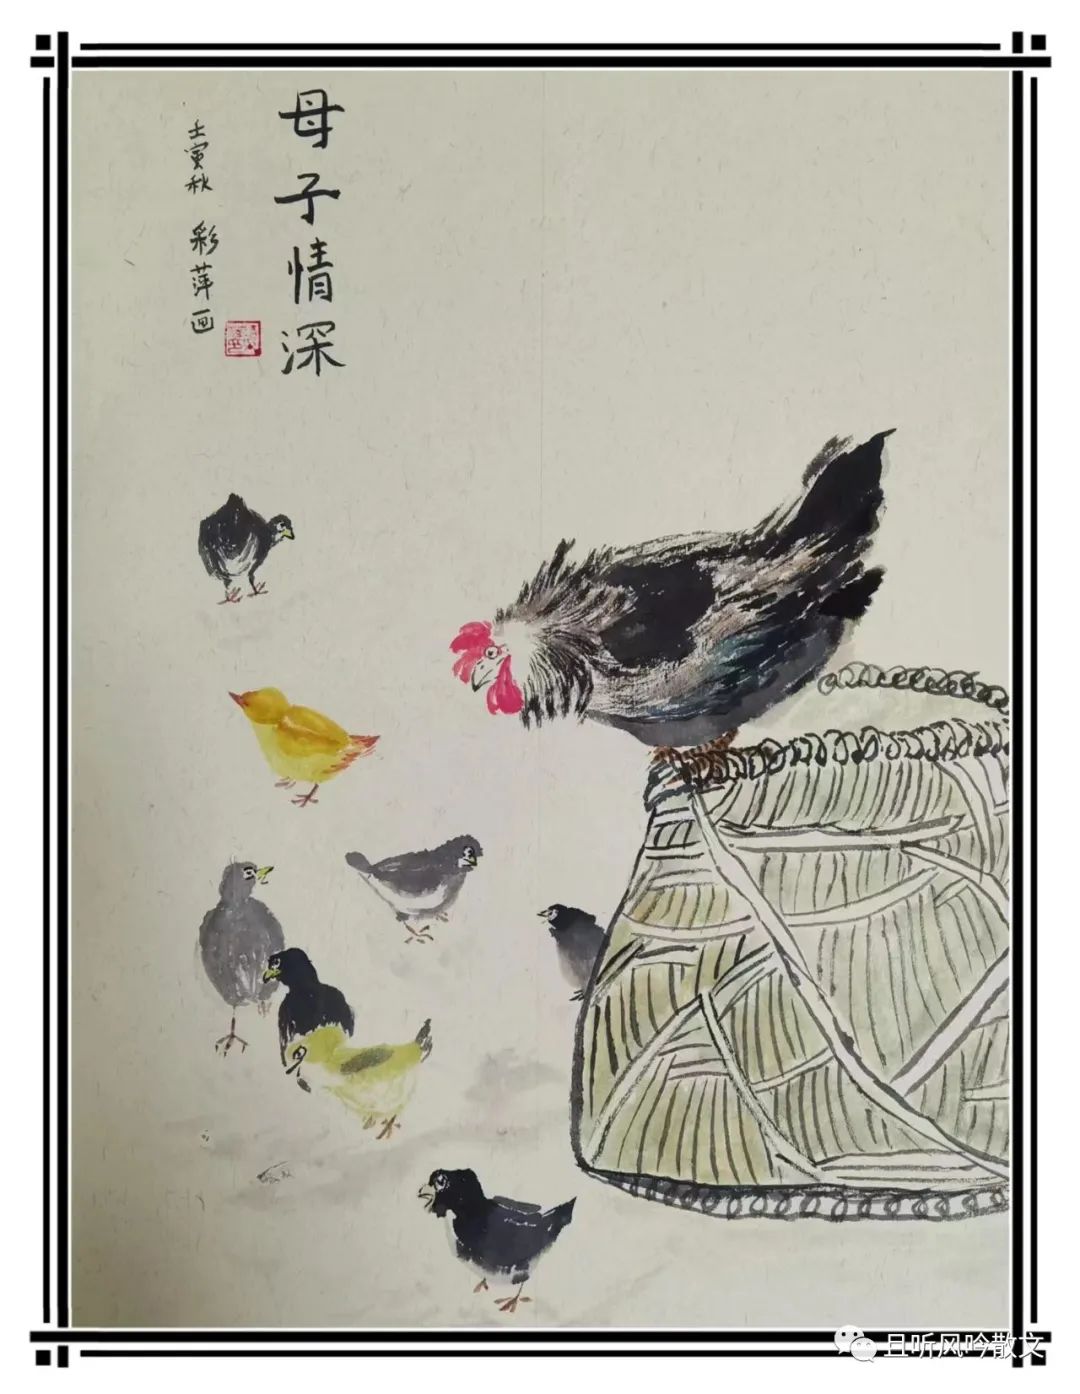 母子情深
壬寅秋 彩萍画
且听风吟散文